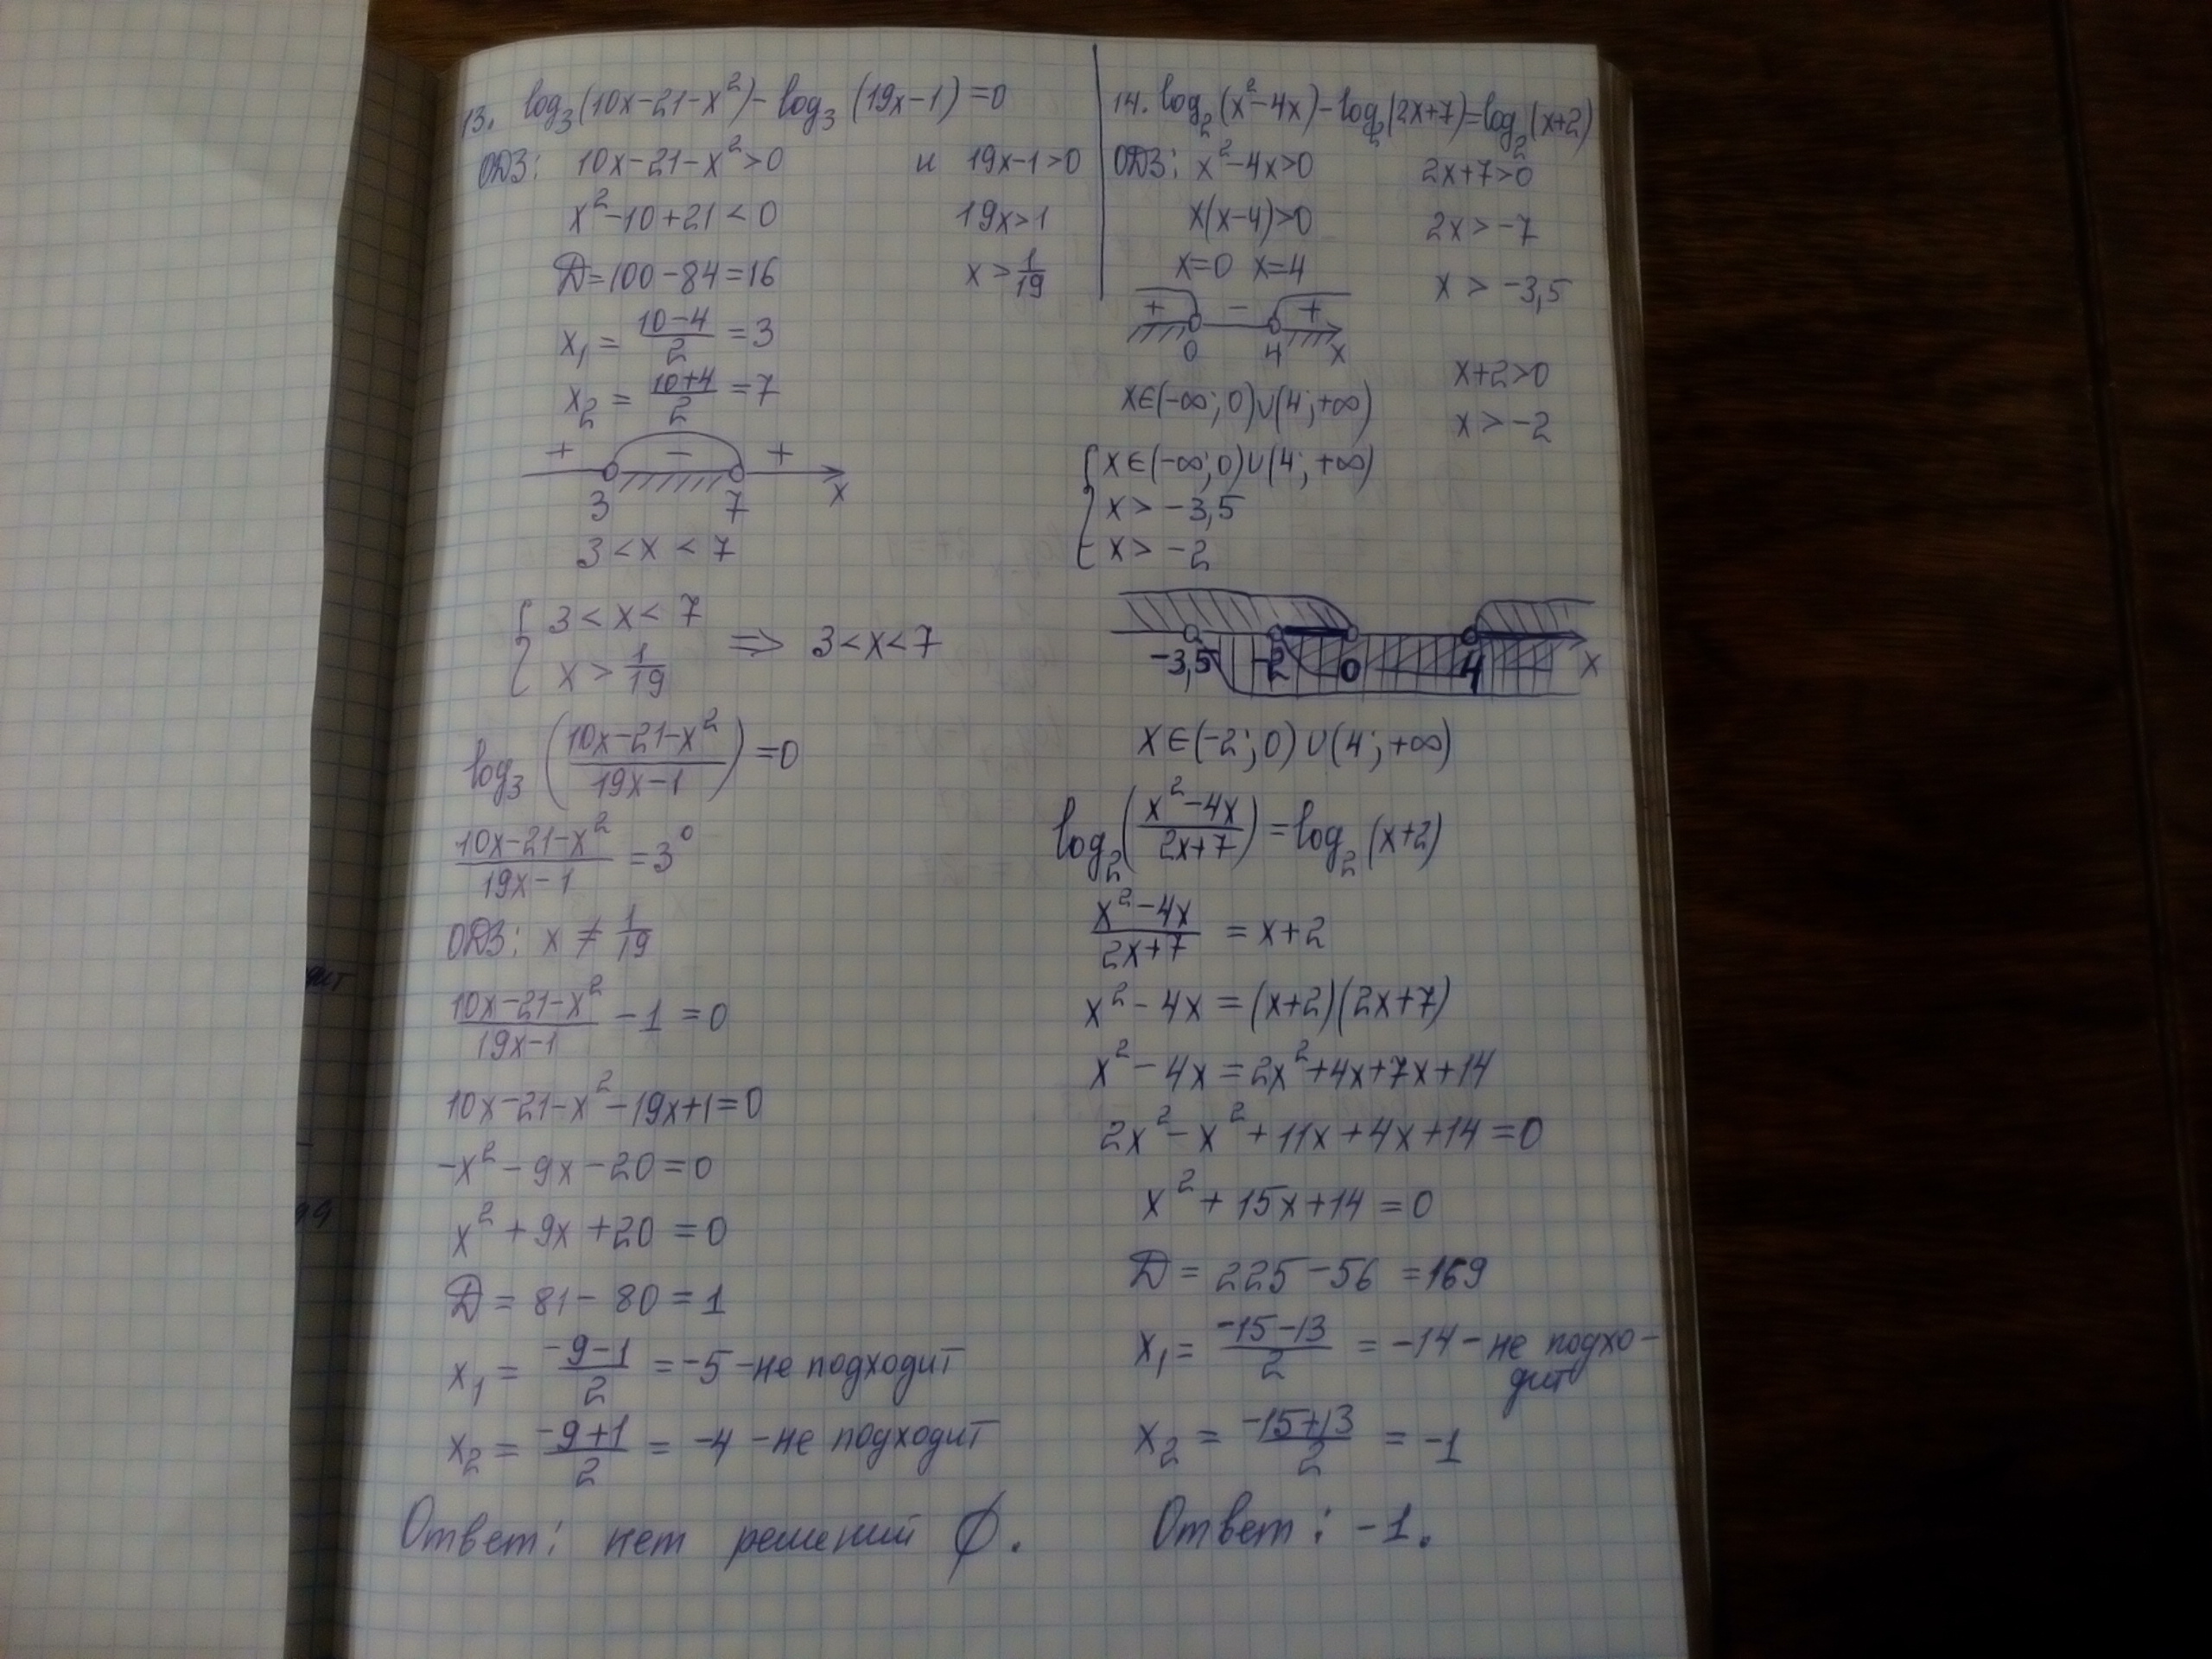 13. log₃(10x-21-x²)-log₃(19x-1)=0
ОДЗ: 10x-21-x²>0 и 19x-1>0
x²-10+21<0 19x>1
D=100-84=16 x>1/19
x₁=(10-4)/2=3
x₂=(10+4)/2=7
+ - +
3 7 x
3<x<7
{ 3<x<7
x>1/19 ⇒ 3<x<7
log₃((10x-21-x²)/(19x-1))=0
(10x-21-x²)/(19x-1)=3⁰
ОДЗ: x≠1/19
(10x-21-x²)/(19x-1)-1=0
10x-21-x²-19x+1=0
-x²-9x-20=0
x²+9x+20=0
D=81-80=1
x₁=(-9-1)/2=-5-не подходит
x₂=(-9+1)/2=-4-не подходит
Ответ: нет решений ∅.
14. log₂(x²-4x)-log₂(2x+7)=log₂(x+2)
ОДЗ: x²-4x>0 2x+7>0
x(x-4)>0 2x>-7
x=0 x=4 x>-3,5
+ - +
0 4 x
x+2>0
x∈(-∞;0)∪(4;+∞) x>-2
{ x∈(-∞;0)∪(4;+∞)
x>-3,5
x>-2
-3,5 -2 0 4 x
x∈(-2;0)∪(4;+∞)
log₂((x²-4x)/(2x+7))=log₂(x+2)
(x²-4x)/(2x+7)=x+2
x²-4x=(x+2)(2x+7)
x²-4x=2x²+4x+7x+14
2x²-x²+11x+4x+14=0
x²+15x+14=0
D=225-56=169
x₁=(-15-13)/2=-14-не подхо-
дит
x₂=(-15+13)/2=-1
Ответ: -1.